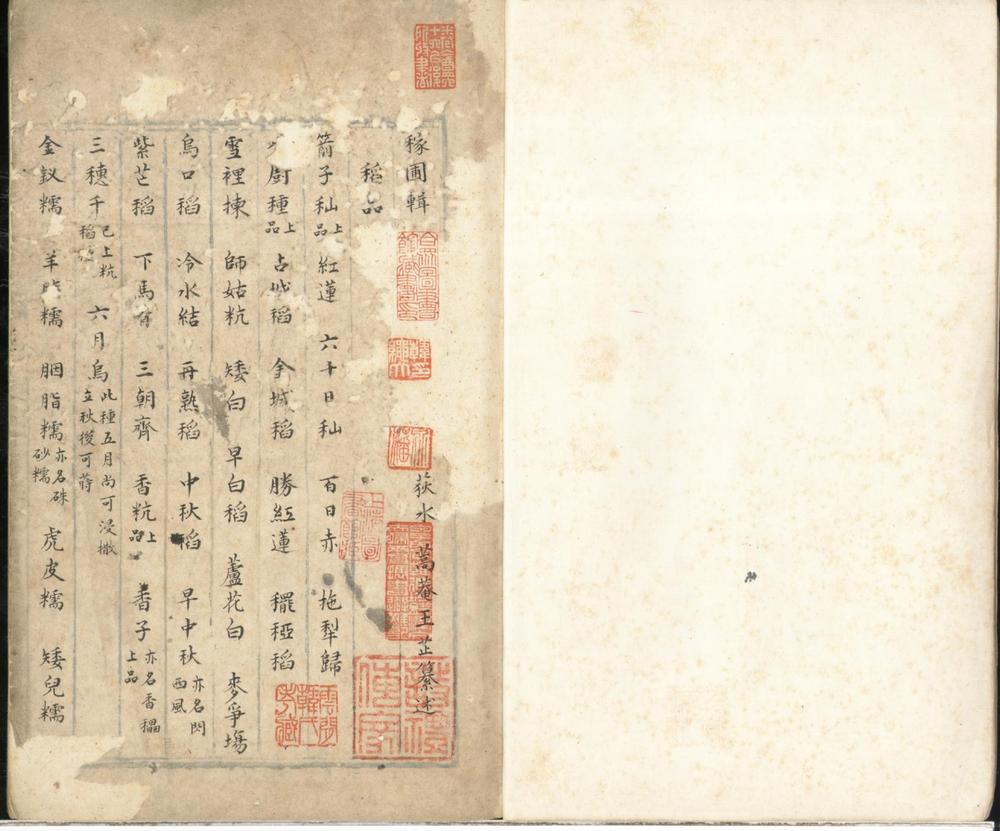 稼圃輯
荻水蒿菴王芷纂述
稻品
箭子秈上品 紅蓮 六十日秈 百日赤 拖犁歸
廚種上品 占城稻 金城稻 勝紅蓮 䆉稏稻
雪裡揀 師姑秔 矮白 早白稻 蘆花白 麥爭場
烏口稻 冷水結 再熟稻 中秋稻 早中秋亦名閃西風
紫芒稻 下馬 三朝齊 香秔上品 香子亦名香䆍上品
三穗千已上秔稻 六月烏此種五月尚可浸撒立秋後可蒔
金釵糯 羊脂糯 胭脂糯亦名硃砂糯 虎皮糯 矮兒糯
雲間韓氏考藏
上海圖書館藏